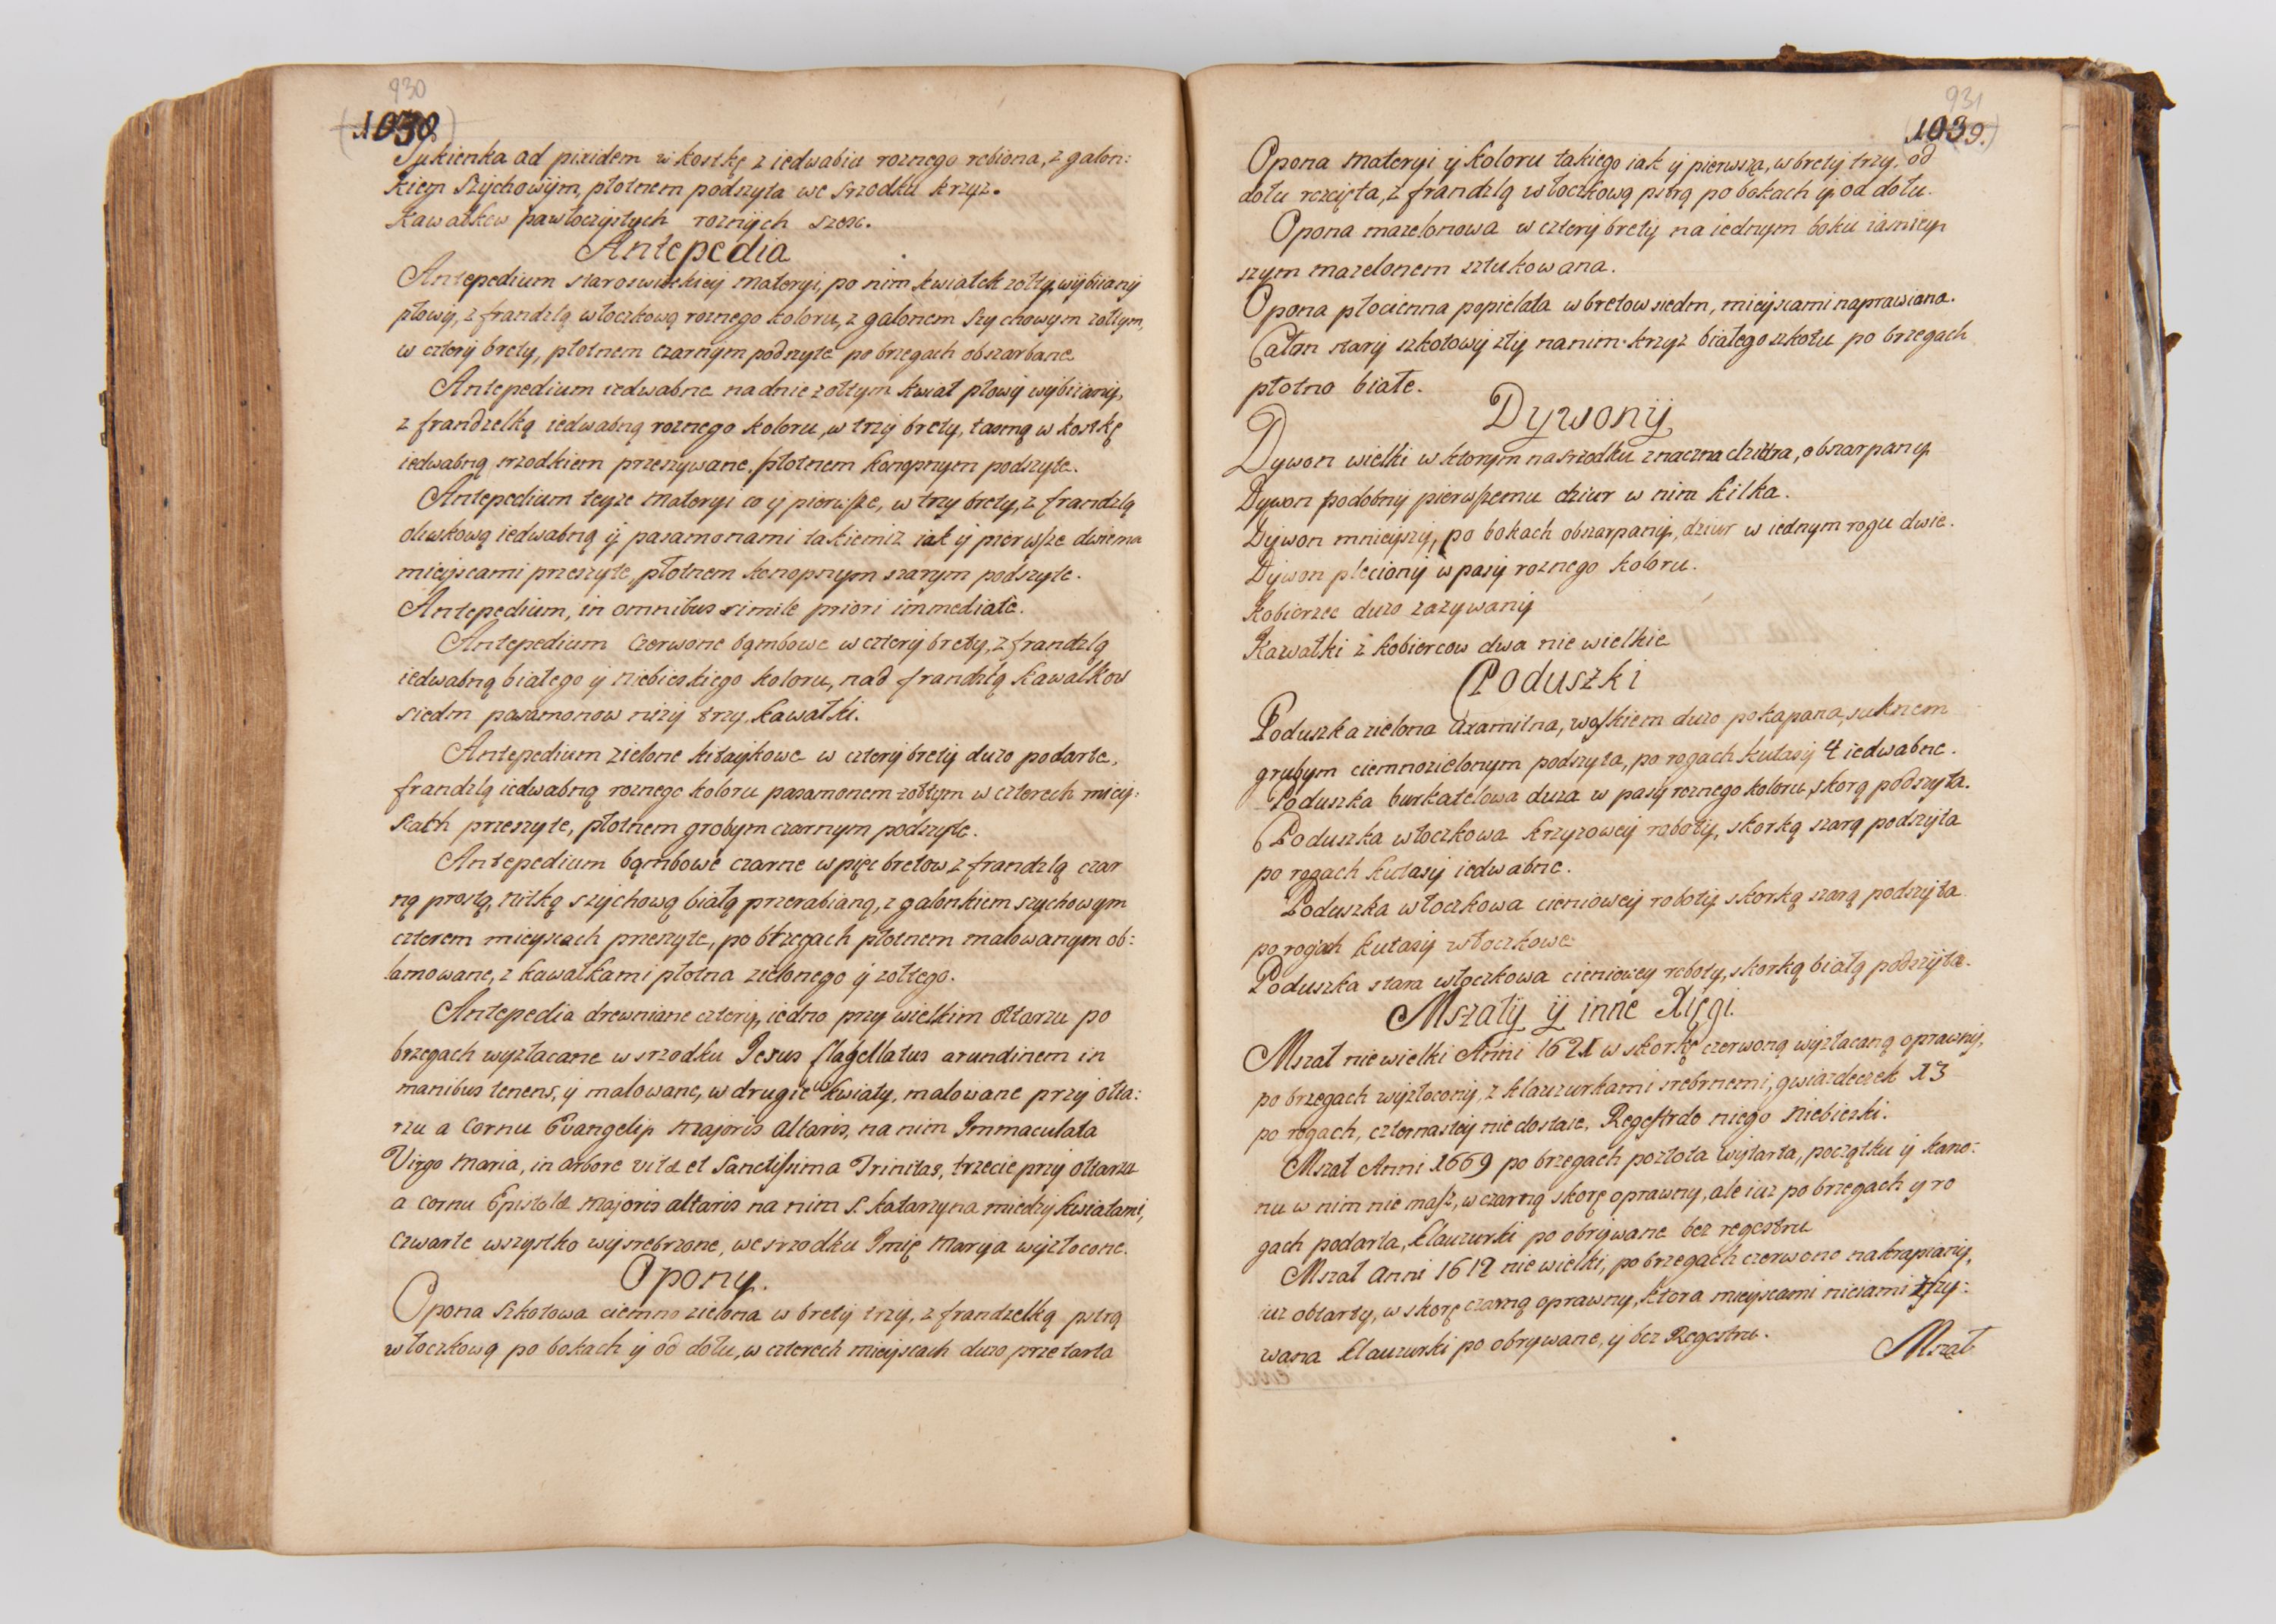 930
1038.
Sukienka ad pixidem w kostkę z iedwabiu roznego robiona, z galon:
kiem szychowym, płotnem podszyta we srzodku krzyz.
Kawałkow pawłoczystych roznych szesc.
Antepedia
Antepedium staroswieckiey materyi, po nim kwiatek zołty, wybiiany
płowy, z frandzlą włoczkową roznego koloru, z galonem szychowym zołtym,
w cztery brety, płotnem czarnym podszyte po brzegach obszarbane
Antepedium iedwabne nadnie zołtym kwiat płowy wybiiany,
z frandzelką iedwabną roznego koloru, w trzy brety, tasmą w kostkę
iedwabną srzodkiem przeszywane, płotnem konopnym podszyte.
Antepedium teyze materyi co y pierwsze, w trzy brety, z frandzlą
oliwkową iedwabną y pasamonami takiemiz iak y pierwsze dwiema
mieyscami przeszyte, płotnem konopnym szarym podszyte.
Antepedium, in omnibus simile priori immediate.
Antepedium czerwone bąmbowe w cztery brety, z frandzlą
iedwabną białego y niebieskiego koloru, nad frandzlą kawałkow
siedm pasamonow nizy trzy kawałki.
Antepedium zielone kitaykowe w cztery brety duzo podarte,
frandzlą iedwabną roznego koloru pasamonem zołtym w czterech miey:
scach przeszyte, płotnem grobym czarnym podszyte.
Antepedium bąmbowe czarne w pięc bretow z frandzlą czar
ną prostą, nitką szychową białą przerabianą, z galonkiem szychowym
czterem mieyscach przeszyte, po brzegach płotnem malowanym ob:
lamowane, z kawałkami płotna zielonego y zołtego.
Antepedia drewniane cztery, iedno przy wielkim ołtarzu po
brzegach wyzłacane w srzodku Jesus flagellatus arundinem in
manibus tenens, y malowane, w drugie kwiaty, malowane przy ołta:
rzu a Cornu Evangelii Majoris Altaris, na nim Immaculata
Virgo Maria, in arbore vitæ et Sanctissima Trinitas, trzecie przy ołtarzu
a cornu Epistolæ Majoris altaris na nim S. Katarzyna miedzy kwiatami,
czwarte wszystko wysrebrzone, we srzodku Imię Maryja wyzłocone.
Opony.
Opona szkotowa ciemno zielona w brety trzy, z frandzelką pstrą
włoczkową po bokach y od dołu, w czterech mieyscach duzo przetarta
931
1039.
Opona materyi y koloru takiego iak y pierwsza, w brety trzy, od
dołu rozcięta, z frandzlą włoczkową pstrą po bokach y od dołu.
Opona mazelonowa w cztery brety na iednym boku iasniey
szym mazelonem sztukowana.
Opona płocienna popielata w bretow siedm, mieyscami naprawiana.
Całun stary szkotowy zły na nim krzyz białego szkotu po brzegach
płotno białe.
Dywony
Dywon wielki w ktorym na srzodku znaczna dziura, obszarpany
Dywon podobny pierwszemu dziur w nim kilka.
Dywon mnieyszy, po bokach obszarpany, dziur w iednym rogu dwie.
Dywon pleciony w pasy roznego koloru.
Kobierzec duzo zazywany
Kawałki z kobiercow dwa nie wielkie
Poduszki
Poduszka zielona axamitna, woskiem duzo pokapana, suknem
grubym ciemnozielonym podszyta, po rogach kutasy 4 iedwabne.
Poduszka burkatelowa duza w pasy roznego koloru, skorą podszyta.
Poduszka włoczkowa krzyzowey roboty, skorką szarą podszyta
po rogach kutasy iedwabne.
Poduszka włoczkowa cieniowey roboty skorką szarą podszyta
po rogach kutasy włoczkowe
Poduszka stara włoczkowa cieniowey roboty, skorką białą podszyta.
Mszały y inne Xięgi.
Mszał nie wielki Anni 1621 w skorkę czerwoną wyzłacaną oprawny,
po brzegach wyzłocony, z klauzurkami srebrnemi, gwiazdeczek 13
po rogach, czternastey nie dostaie, Regestr do niego niebieski.
Mszał Anni 1669 po brzegach pozłota wytarta, początku y kano:
nu w nim nie masz, w czarną skorę oprawny, ale iuz po brzegach y ro
gach podarta, klauzurki po obrywane bez regestru
Mszał Anni 1612 nie wielki, po brzegach czerwono nakrapiany,
iuz obtarty, w skorę czarną oprawny, ktora mieyscami niciami zszy:
wana klauzurki po obrywane, y bez Regestru.
Mszał